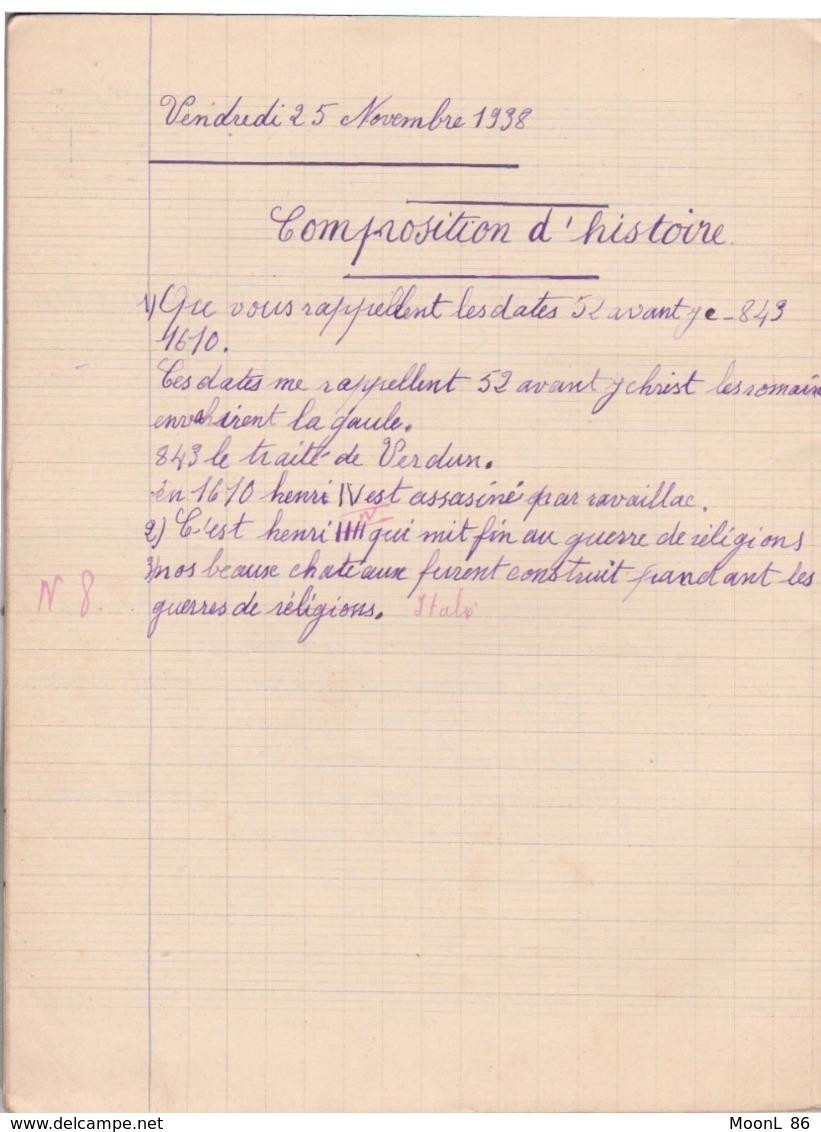 Vendredi 25 Novembre 1938
Composition d'histoire.
1) Que vous rappellent les dates 52 avant j c - 843
1610.
Ces dates me rappellent 52 avant j christ les romain
envahirent la gaule.
843 le traité de Verdun.
en 1610 henri IV est assasiné par ravaillac.
IV
2) C'est henri IIII qui mit fin au guerre de réligions
3) nos beaux chateaux furent construit pandant les
N 8.
guerres de réligions. Itale
MoonL 86
delcampe.net